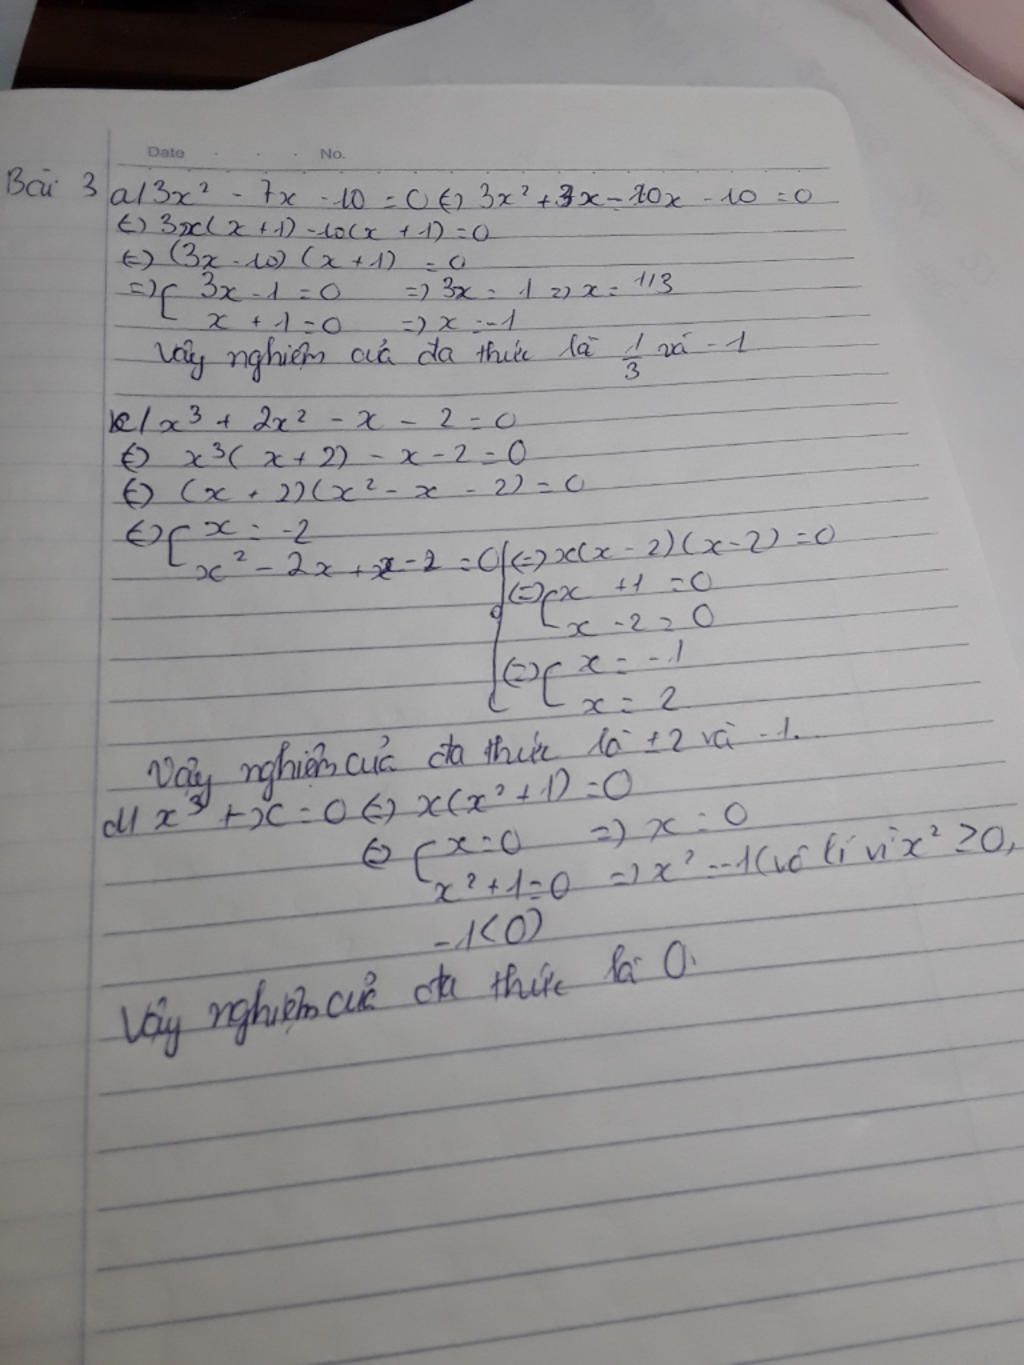 Date . . . No.
Bài 3 a/ 3x² - 7x - 10 = 0 ⇔ 3x² + 3x - 10x - 10 = 0
⇔ 3x(x + 1) - 10(x + 1) = 0
⇔ (3x - 10) (x + 1) = 0
⇒ [ 3x - 1 = 0 ⇒ 3x = 1 ⇒ x = 1/3
x + 1 = 0 ⇒ x = -1
Vậy nghiệm của đa thức là 1/3 và -1
c/ x³ + 2x² - x - 2 = 0
⇔ x³(x + 2) - x - 2 = 0
⇔ (x + 2)(x² - x - 2) = 0
⇔ [ x = -2
x² - 2x + x - 2 = 0 | ⇔ x(x - 2)(x - 2) = 0
⇔ [ x + 1 = 0
x - 2 = 0
⇔ [ x = -1
x = 2
Vậy nghiệm của đa thức là ±2 và -1.
d/ x³ + x = 0 ⇔ x(x² + 1) = 0
⇔ [ x = 0 ⇒ x = 0
x² + 1 = 0 ⇒ x² = -1 (vô lí vì x² ≥ 0,
-1 < 0)
Vậy nghiệm của đa thức là 0.